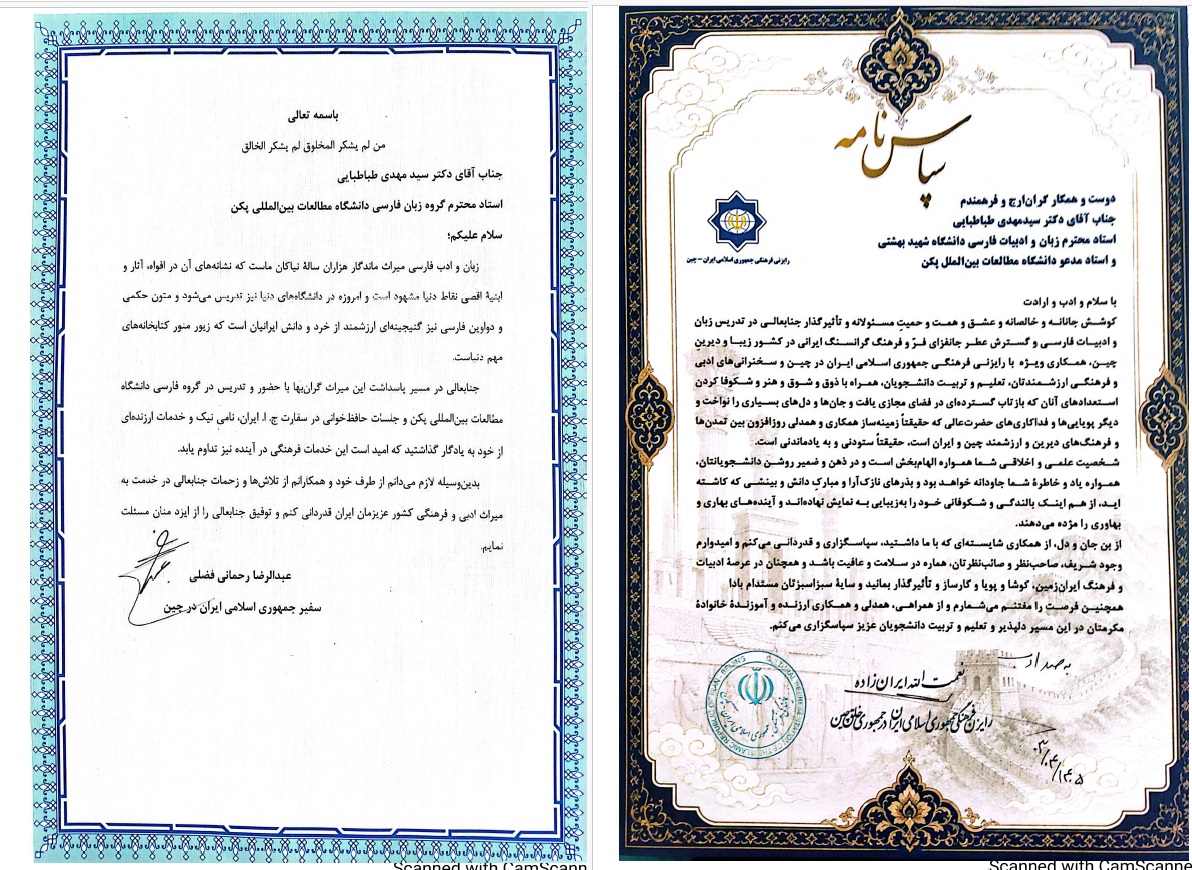 باسمه تعالی
من لم یشکر المخلوق لم یشکر الخالق
جناب آقای دکتر سید مهدی طباطبایی
استاد محترم گروه زبان فارسی دانشگاه مطالعات بین‌المللی پکن
سلام علیکم؛
زبان و ادب فارسی میراث ماندگار هزاران سالهٔ نیاکان ماست که نشانه‌های آن در افواه، آثار و
ابنیهٔ اقصی نقاط دنیا مشهود است و امروزه در دانشگاه‌های دنیا نیز تدریس می‌شود و متون حکمی
و دواوین فارسی نیز گنیجینه‌ای ارزشمند از خرد و دانش ایرانیان است که زیور منور کتابخانه‌های
مهم دنیاست.
جنابعالی در مسیر پاسداشت این میراث گران‌بها با حضور و تدریس در گروه فارسی دانشگاه
مطالعات بین‌المللی پکن و جلسات حافظ‌خوانی در سفارت ج. ا. ایران، نامی نیک و خدمات ارزنده‌ای
از خود به یادگار گذاشتید که امید است این خدمات فرهنگی در آینده نیز تداوم یابد.
بدین‌وسیله لازم می‌دانم از طرف خود و همکارانم از تلاش‌ها و زحمات جنابعالی در خدمت به
میراث ادبی و فرهنگی کشور عزیزمان ایران قدردانی کنم و توفیق جنابعالی را از ایزد منان مسئلت
نمایم.
عبدالرضا رحمانی فضلی
سفیر جمهوری اسلامی ایران در چین
Scanned with CamScann
سپاس‌نامه
رایزنی فرهنگی جمهوری اسلامی ایران – چین
دوست و همکار گران‌ارج و فرهمندم
جناب آقای دکتر سیدمهدی طباطبایی
استاد محترم زبان و ادبیات فارسی دانشگاه شهید بهشتی
و استاد مدعو دانشگاه مطالعات بین‌الملل پکن
با سلام و ادب و ارادت
کوشش جانانه و خالصانه و عشق و همت و حمیتِ مسئولانه و تأثیرگذار جنابعالی در تدریس زبان
و ادبیات فارسی و گسترش عطر جانفزای فرّ و فرهنگ گرانسنگ ایرانی در کشور زیبا و دیرین
چین، همکاری ویژه با رایزنی فرهنگی جمهوری اسلامی ایران در چین و سخنرانی‌های ادبی
و فرهنگی ارزشمندتان، تعلیم و تربیت دانشجویان، همراه با ذوق و شوق و هنر و شکوفا کردن
استعدادهای آنان که بازتاب گسترده‌ای در فضای مجازی یافت و جان‌ها و دل‌های بسیاری را نواخت و
دیگر پویایی‌ها و فداکاری‌های حضرت‌عالی که حقیقتاً زمینه‌ساز همکاری و همدلی روزافزون بین تمدن‌ها
و فرهنگ‌های دیرین و ارزشمند چین و ایران است، حقیقتاً ستودنی و به یادماندنی است.
شخصیت علمی و اخلاقی شما همواره الهام‌بخش است و در ذهن و ضمیر روشن دانشجویانتان،
همواره یاد و خاطرهٔ شما جاودانه خواهد بود و بذرهای نازک‌آرا و مبارکِ دانش و بینشی که کاشته
اید، از هم اینک بالندگی و شکوفائی خود را به‌زیبایی به نمایش نهاده‌اند و آینده‌های بهاری و
بهاوری را مژده می‌دهند.
از بن جان و دل، از همکاری شایسته‌ای که با ما داشتید، سپاسگزاری و قدردانی می‌کنم و امیدوارم
وجود شریف، صاحب‌نظر و صائب‌نظرتان، هماره در سلامت و عافیت باشد و همچنان در عرصهٔ ادبیات
و فرهنگ ایران‌زمین، کوشا و پویا و کارساز و تأثیرگذار بمانید و سایهٔ سبزاسبزتان مستدام بادا
همچنین فرصت را مغتنم می‌شمارم و از همراهی، همدلی و همکاری ارزنده و آموزندهٔ خانوادهٔ
مکرمتان در این مسیر دلپذیر و تعلیم و تربیت دانشجویان عزیز سپاسگزاری می‌کنم.
به صد ادب
نعمت الله ایران‌زاده
رایزن فرهنگی جمهوری اسلامی ایران در جمهوری خلق چین
Scanned with CamScanne